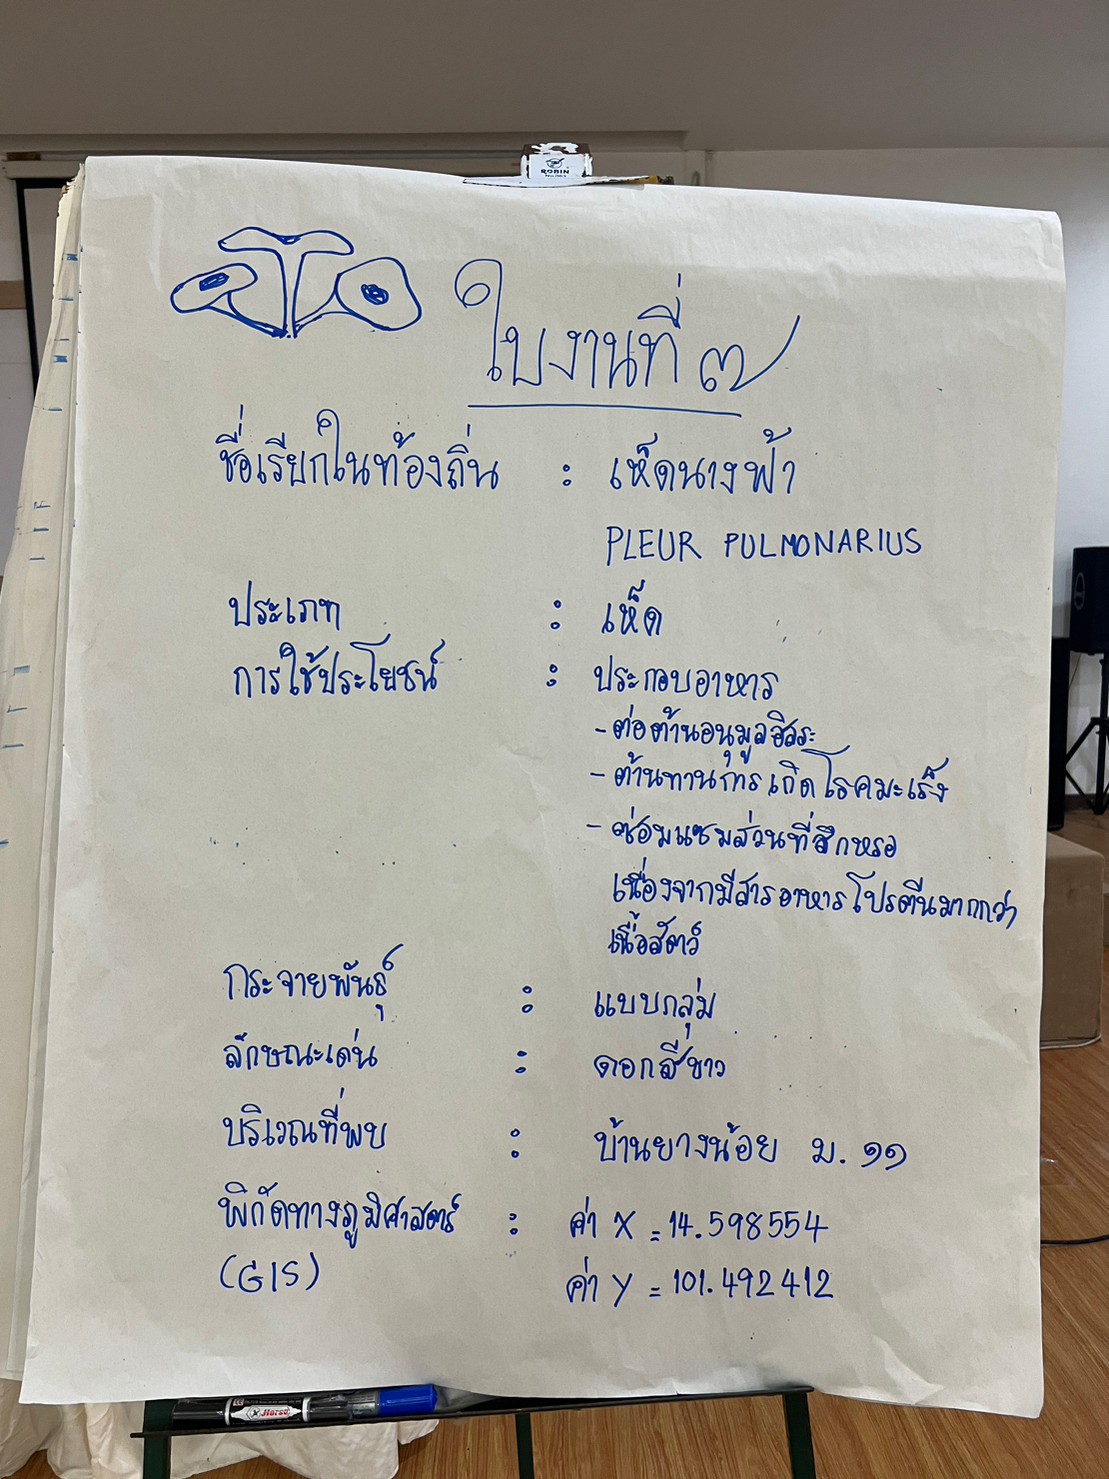 ROBIN
ใบงานที่ ๗
ชื่อเรียกในท้องถิ่น : เห็ดนางฟ้า
PLEUR PULMONARIUS
ประเภท : เห็ด
การใช้ประโยชน์ : ประกอบอาหาร
- ต่อต้านอนุมูลอิสระ
- ต้านทานการเกิดโรคมะเร็ง
- ซ่อมแซมส่วนที่สึกหรอ
เนื่องจากมีสารอาหารโปรตีนมากกว่า
เนื้อสัตว์
กระจายพันธุ์ : แบบกลุ่ม
ลักษณะเด่น : ดอกสีขาว
บริเวณที่พบ : บ้านยางน้อย ม. ๑๑
พิกัดทางภูมิศาสตร์ : ค่า X = 14.598554
(GIS) ค่า Y = 101.492412
Horse